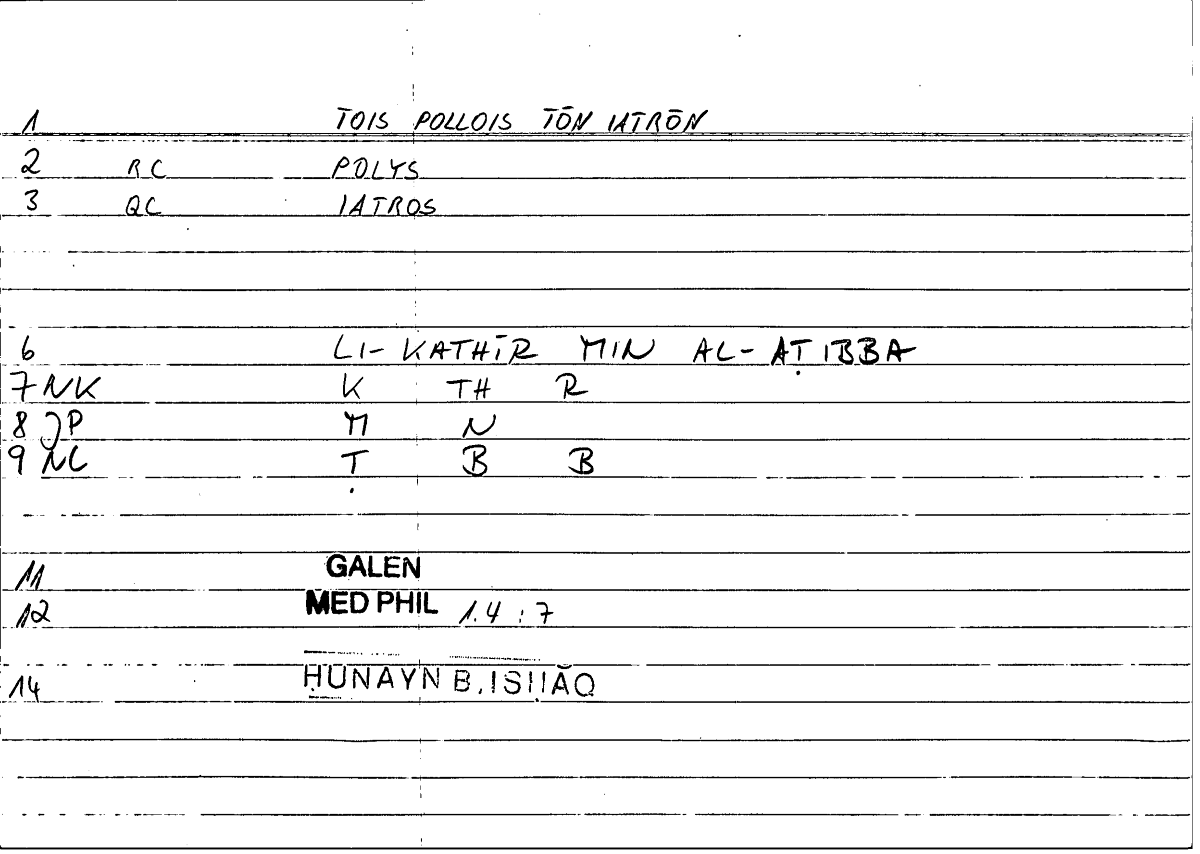 1 TOIS POLLOIS TŌN IATRŌN
2 RC POLYS
3 QC IATROS
6 LI- KATHĪR MIN AL- AṬIBBA
7 NK K TH R
8 JP M N
9 NC Ṭ B B
11 GALEN
12 MED PHIL 1.4 : 7
14 ḤUNAYN B. ISḤĀQ